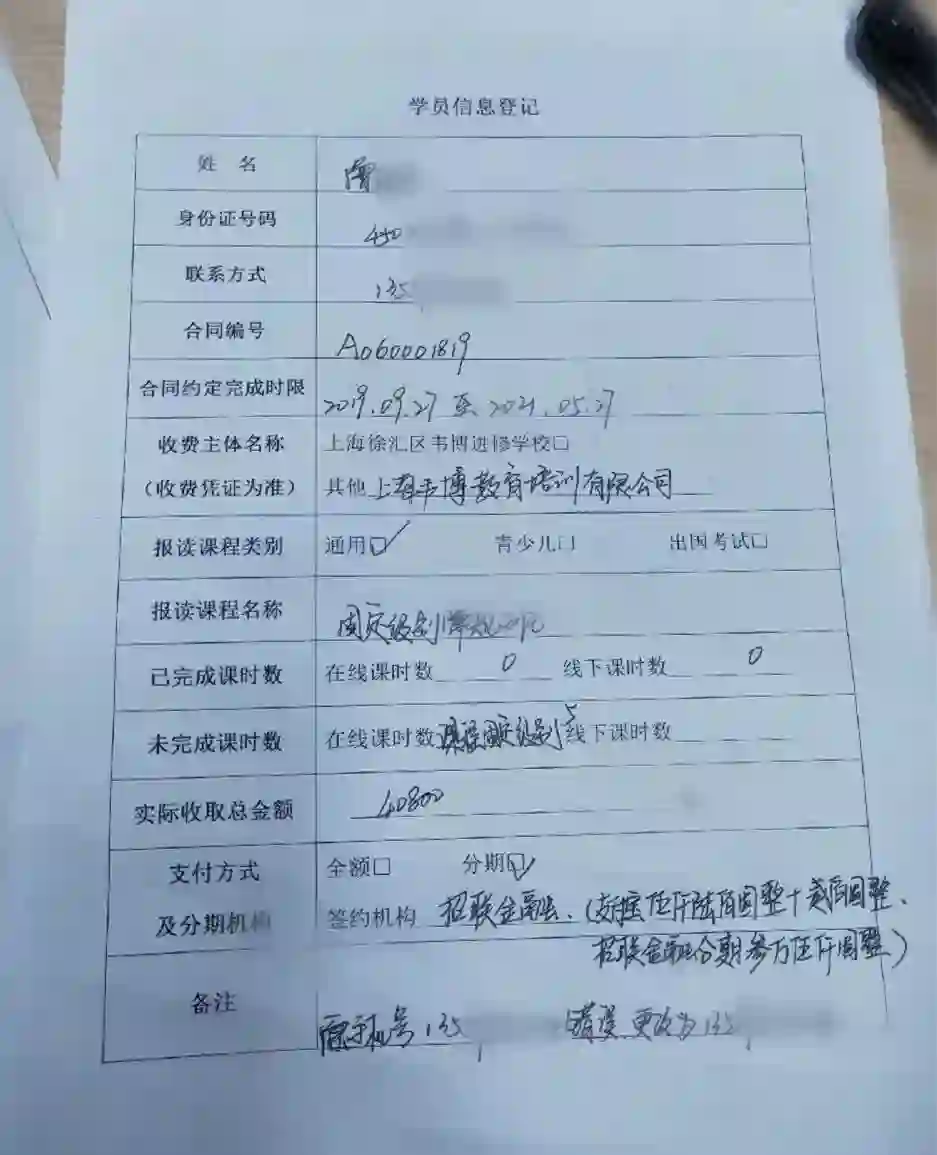 学员信息登记
姓 名 曾
身份证号码 450
联系方式 135
合同编号 A060001819
合同约定完成时限 2019.09.27 至 2021.05.27
收费主体名称 上海徐汇区韦博进修学校□
（收费凭证为准） 其他 上海韦博教育培训有限公司
报读课程类别 通用☑ 青少儿□ 出国考试□
报读课程名称 固定级别
已完成课时数 在线课时数 0 线下课时数 0
未完成课时数 在线课时数 课程固定级别5 线下课时数
实际收取总金额 40800
支付方式 全额□ 分期☑
及分期机构 签约机构 招联金融、(支付宝伍仟陆佰圆整+贰佰圆整、
招联金融分期叁万伍仟圆整)
备注 原手机号135 错误 更改为135